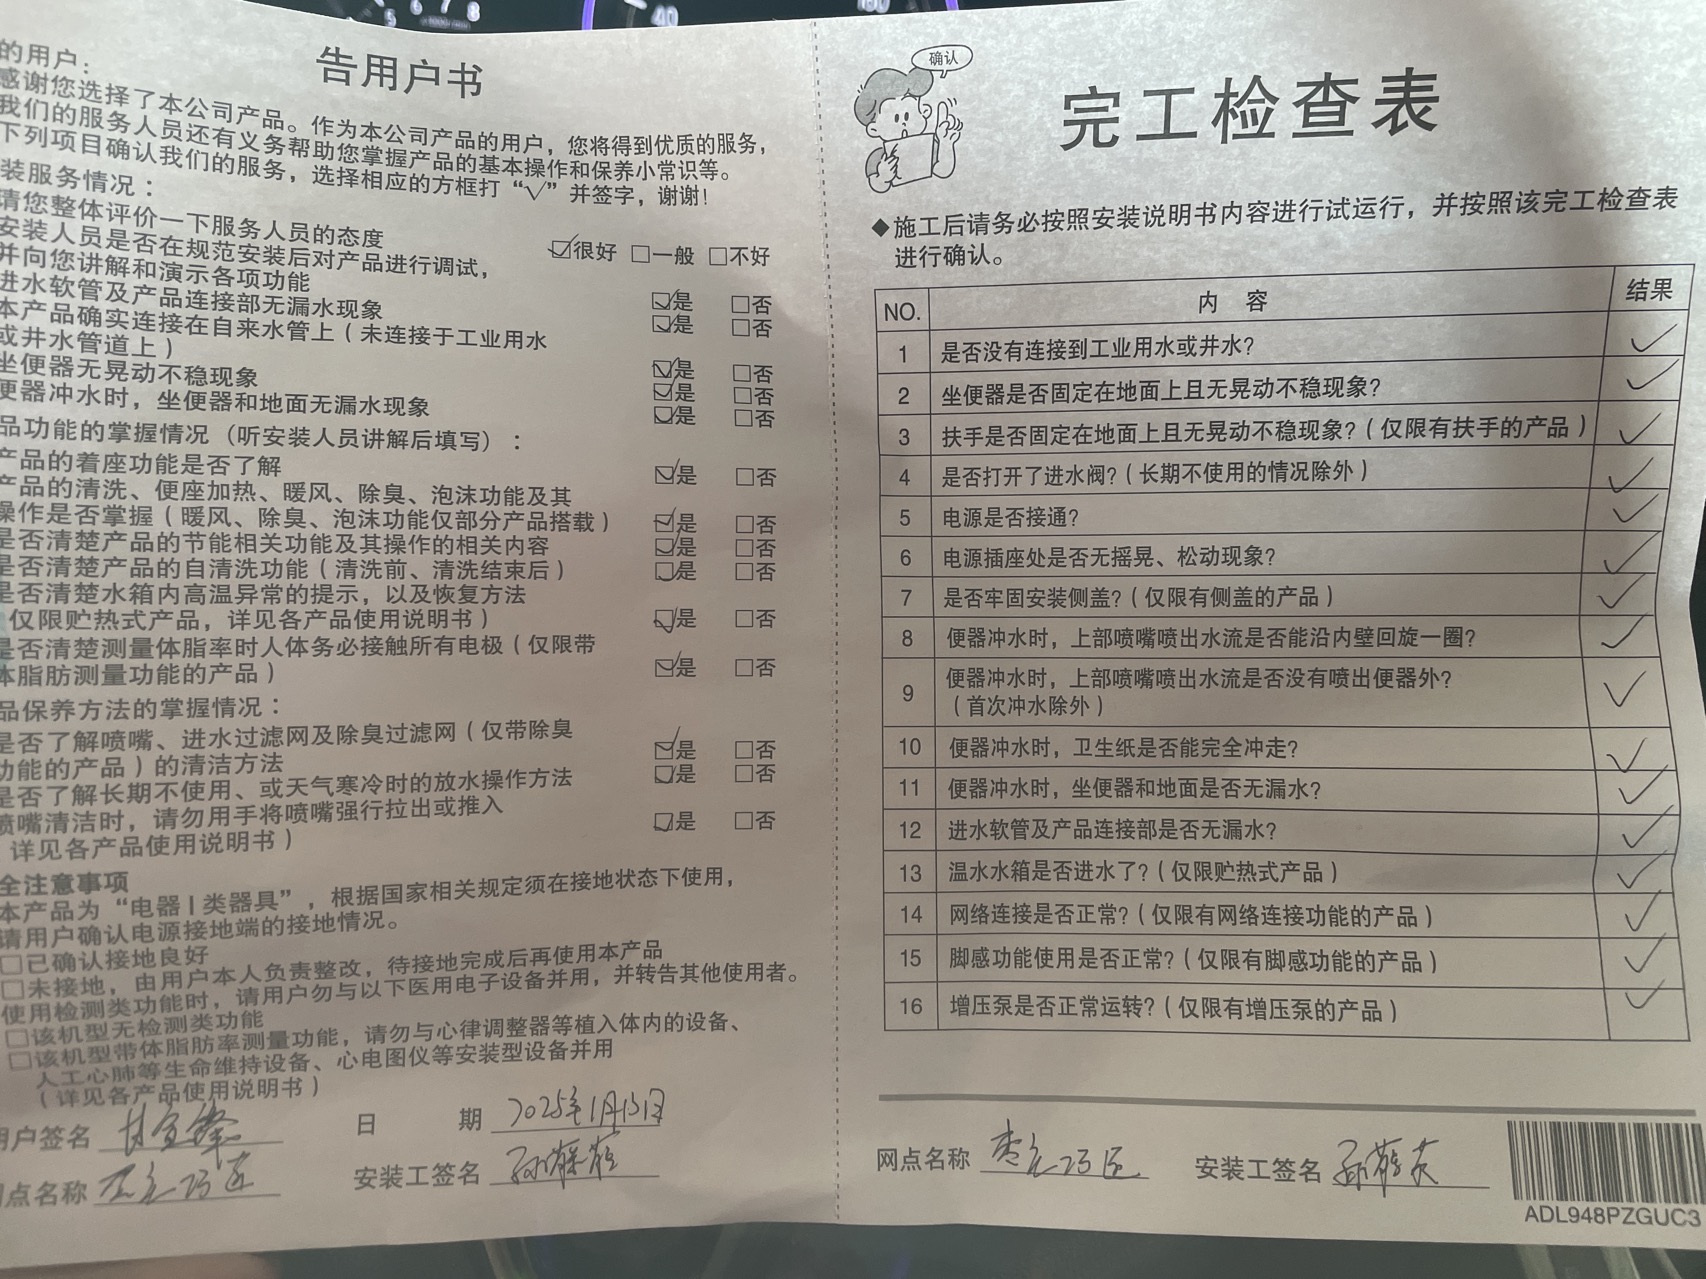 告用户书
的用户：
感谢您选择了本公司产品。作为本公司产品的用户，您将得到优质的服务，
我们的服务人员还有义务帮助您掌握产品的基本操作和保养小常识等。
下列项目确认我们的服务，选择相应的方框打“√”并签字，谢谢！
装服务情况：
请您整体评价一下服务人员的态度 ☑很好 □一般 □不好
安装人员是否在规范安装后对产品进行调试，
并向您讲解和演示各项功能 ☑是 □否
进水软管及产品连接部无漏水现象 ☑是 □否
本产品确实连接在自来水管上（未连接于工业用水
或井水管道上） ☑是 □否
坐便器无晃动不稳现象 ☑是 □否
便器冲水时，坐便器和地面无漏水现象 ☑是 □否
品功能的掌握情况（听安装人员讲解后填写）：
产品的着座功能是否了解 ☑是 □否
产品的清洗、便座加热、暖风、除臭、泡沫功能及其
操作是否掌握（暖风、除臭、泡沫功能仅部分产品搭载） ☑是 □否
是否清楚产品的节能相关功能及其操作的相关内容 ☑是 □否
是否清楚产品的自清洗功能（清洗前、清洗结束后） ☑是 □否
是否清楚水箱内高温异常的提示，以及恢复方法
仅限贮热式产品，详见各产品使用说明书） ☑是 □否
是否清楚测量体脂率时人体务必接触所有电极（仅限带
体脂肪测量功能的产品） ☑是 □否
品保养方法的掌握情况：
是否了解喷嘴、进水过滤网及除臭过滤网（仅带除臭
功能的产品）的清洁方法 ☑是 □否
是否了解长期不使用、或天气寒冷时的放水操作方法 ☑是 □否
喷嘴清洁时，请勿用手将喷嘴强行拉出或推入
详见各产品使用说明书） ☑是 □否
全注意事项
本产品为“电器Ⅰ类器具”，根据国家相关规定须在接地状态下使用，
请用户确认电源接地端的接地情况。
□已确认接地良好
□未接地，由用户本人负责整改，待接地完成后再使用本产品
使用检测类功能时，请用户勿与以下医用电子设备并用，并转告其他使用者。
□该机型无检测类功能
□该机型带体脂肪率测量功能，请勿与心律调整器等植入体内的设备、
人工心肺等生命维持设备、心电图仪等安装型设备并用
（详见各产品使用说明书）
用户签名 日 期 2025年1月13日
网点名称 安装工签名
确认
完工检查表
◆施工后请务必按照安装说明书内容进行试运行，并按照该完工检查表
进行确认。
NO. 内 容 结果
1 是否没有连接到工业用水或井水？ ✓
2 坐便器是否固定在地面上且无晃动不稳现象？ ✓
3 扶手是否固定在地面上且无晃动不稳现象？（仅限有扶手的产品） ✓
4 是否打开了进水阀？（长期不使用的情况除外） ✓
5 电源是否接通？ ✓
6 电源插座处是否无摇晃、松动现象？ ✓
7 是否牢固安装侧盖？（仅限有侧盖的产品） ✓
8 便器冲水时，上部喷嘴喷出水流是否能沿内壁回旋一圈？ ✓
9 便器冲水时，上部喷嘴喷出水流是否没有喷出便器外？
（首次冲水除外） ✓
10 便器冲水时，卫生纸是否能完全冲走？ ✓
11 便器冲水时，坐便器和地面是否无漏水？ ✓
12 进水软管及产品连接部是否无漏水？ ✓
13 温水水箱是否进水了？（仅限贮热式产品） ✓
14 网络连接是否正常？（仅限有网络连接功能的产品） ✓
15 脚感功能使用是否正常？（仅限有脚感功能的产品） ✓
16 增压泵是否正常运转？（仅限有增压泵的产品） ✓
网点名称 安装工签名
ADL948PZGUC3